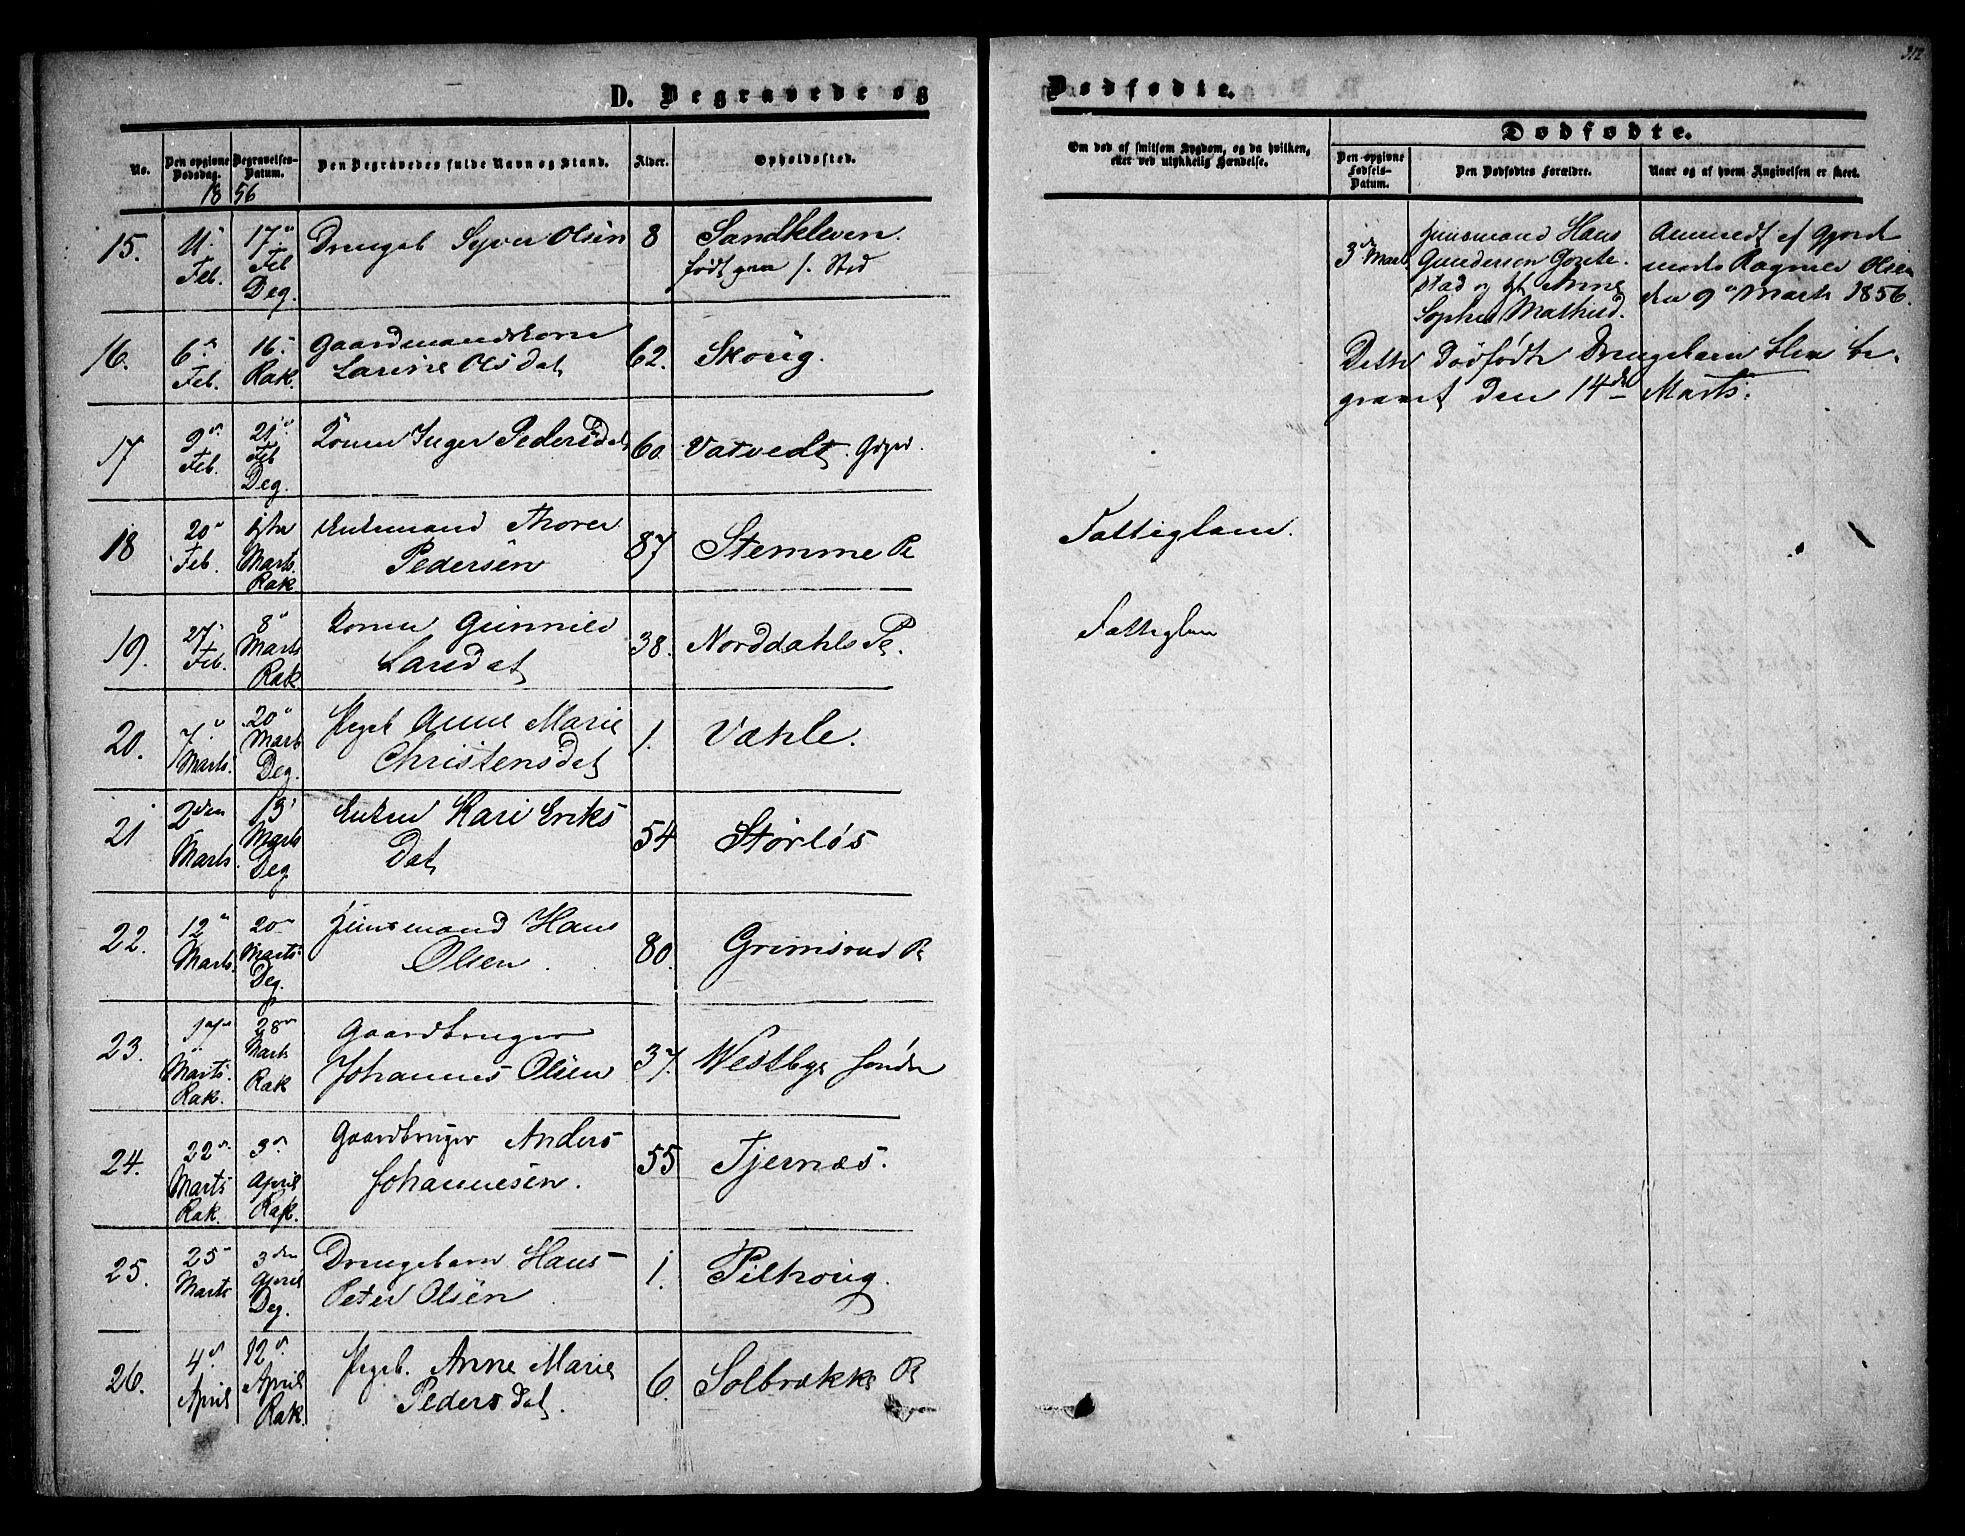 D. Begravede og
No.
Den opgivne Dødsdag.
Begravelses-Datum.
Den Begravedes fulde Navn og Stand.
Alder.
Opholdssted.
18 56
15. 11 Feb. 17 Feb Deg. Drengeb Syver Olsen 8 Sandkleven.
født paa s. Sted
16. 6 Feb. 16 Rak. Gaardmandskone
Larine Olsdat 62. Skoug.
17 9 Feb. 21 Feb Deg. Konen Inger Pedersdat 60 Vatvedt
18 20 Feb. 1ste Marts. Rak Enkemand Thorer
Pedersen 87 Stemme Pl
19. 27 Feb. 8 Marts Rak Konen Gunnild
Larsdat 38. Norddahls Pl.
20. 7 Marts. 20 Marts Deg. Pigeb Anne Marie
Christensdat 1. Væhle.
21 2den Marts. 13 Marts Deg Enken Kari Eriks
Dat 54 Størløs
22. 12 Marts. 20 Marts Deg. Huusmand Hans
Olsen 80. Grimsrud Pl
23. 17 Marts. Rak. 28 Marts Rak Gaardbruger
Johannes Olsen 37. Westbye søndre
24. 22 Marts Rak. 3 April Rak. Gaardbruger Anders
Johannesen. 55 Tjernæs.
25. 25 Marts 3den April Deg. Drengebarn Hans
Peter Olsen 1. Pilskoug.
26. 4 April 12 April Rak. Pigeb. Anne Marie
Pedersdat. 6. Solbrække Pl
312
Dødfødte.
Om død af smitsom Sygdom, og da hvilken,
eller ved ulykkelig Hændelse.
Dødfødte.
Den opgivne Fødsels-Datum.
Den Dødfødtes Forældre.
Naar og af hvem Angivelsen er skeet.
3 Mart. Huusmand Hans
Gundersen
stad og Anne
Sophie
Anmeldt af Gjord
moder Ragnild Olsen
den 9 Marts 1856.
Dette Dødfødte Drengebarn blev be-
gravet den 14de Marts.
Fattiglem.
Fattiglem